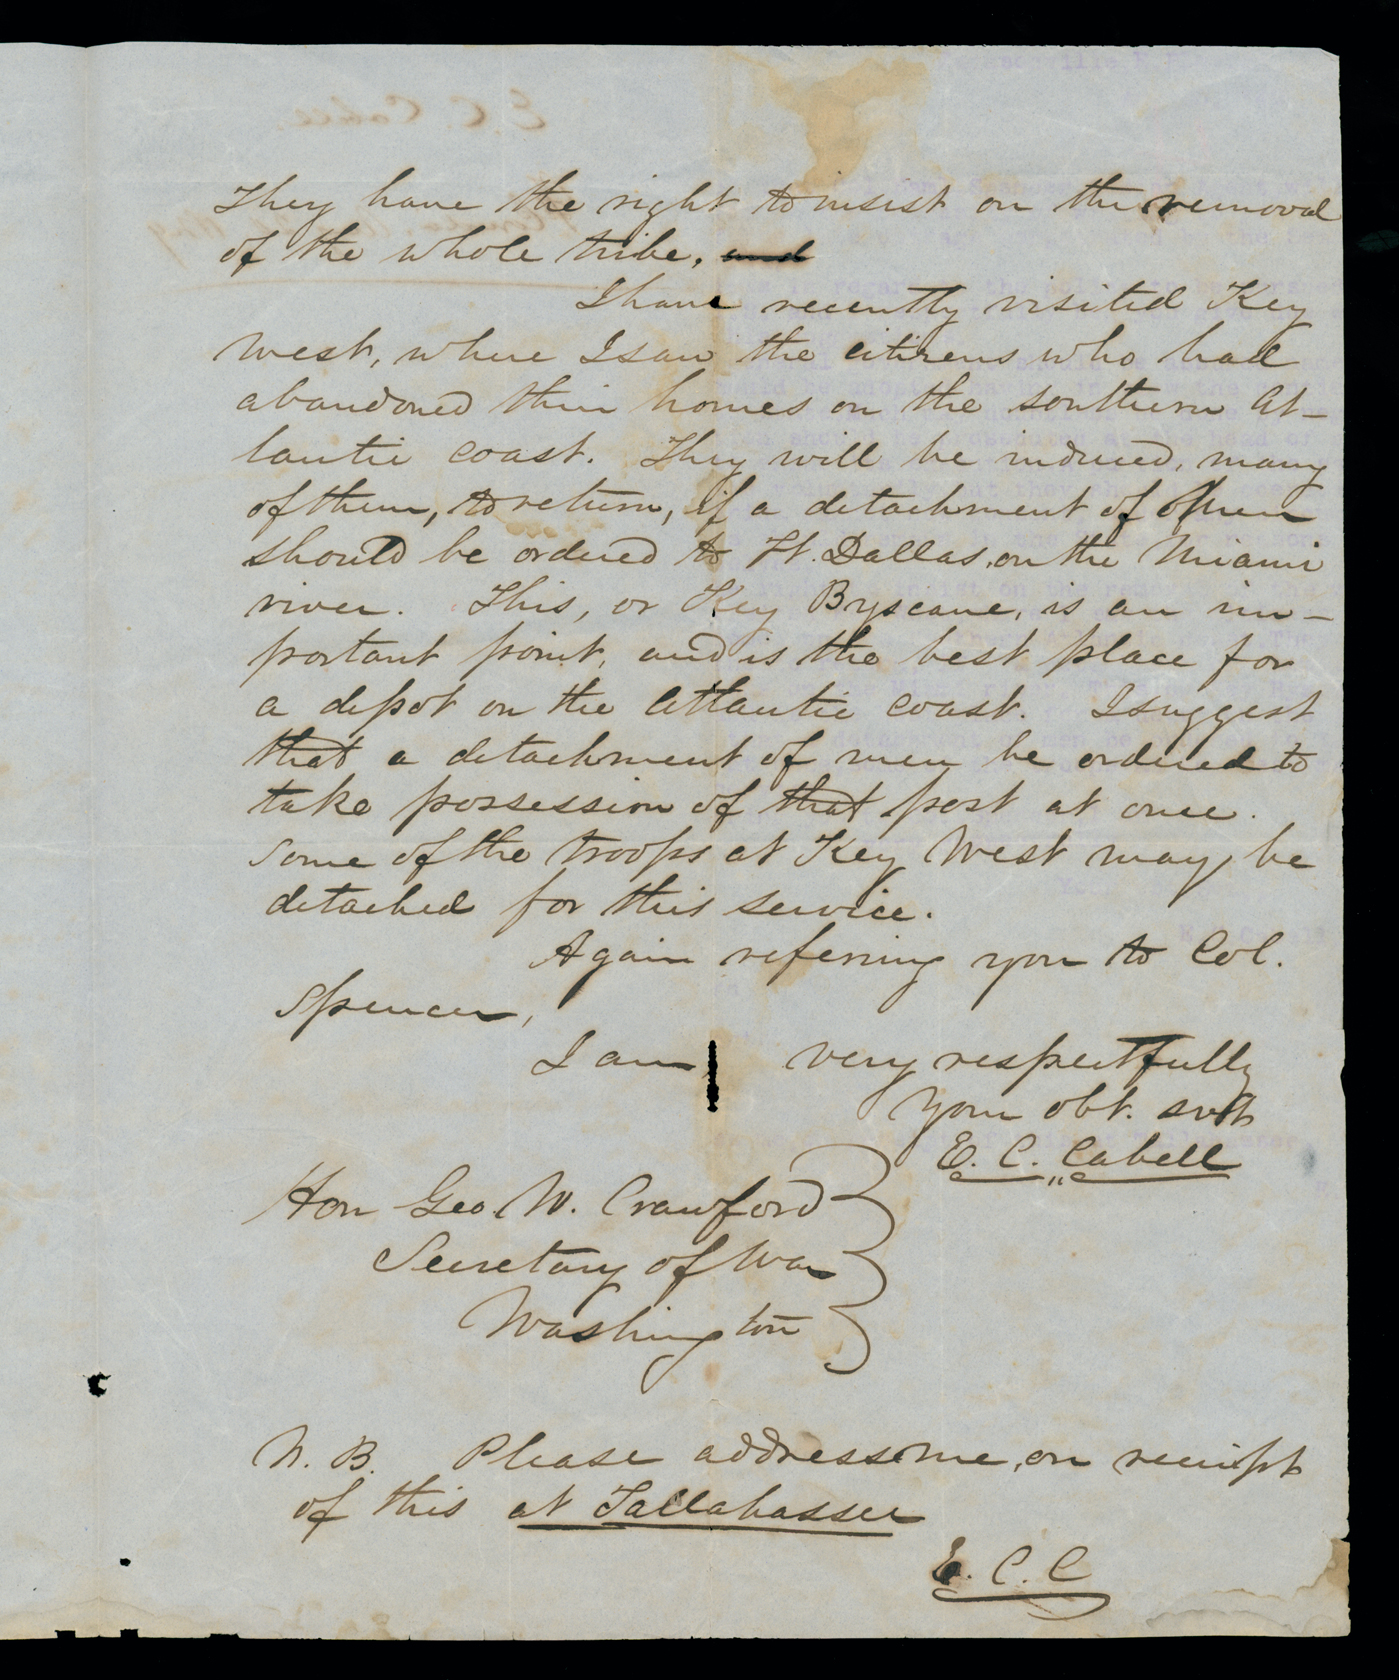 They have the right to insist on the removal
of the whole tribe, and
I have recently visited Key
West, where I saw the citizens who had
abandoned their homes on the southern At-
lantic coast. They will be induced, many
of them, to return, if a detachment of men
should be ordered to Ft. Dallas, on the Miami
river. This, or Key Byscane, is an im-
portant point, and is the best place for
a depot on the Atlantic coast. I suggest
that a detachment of men be ordered to
take possession of that post at once.
Some of the troops at Key West may be
detached for this service.
Again referring you to Col.
Spencer,
I am very respectfully
Your obt. svt
E. C. Cabell
Hon Geo. W. Crawford
Secretary of War
Washington
N. B. Please address me, on receipt
of this at Tallahassee
E. C. C
E. C. Cabell